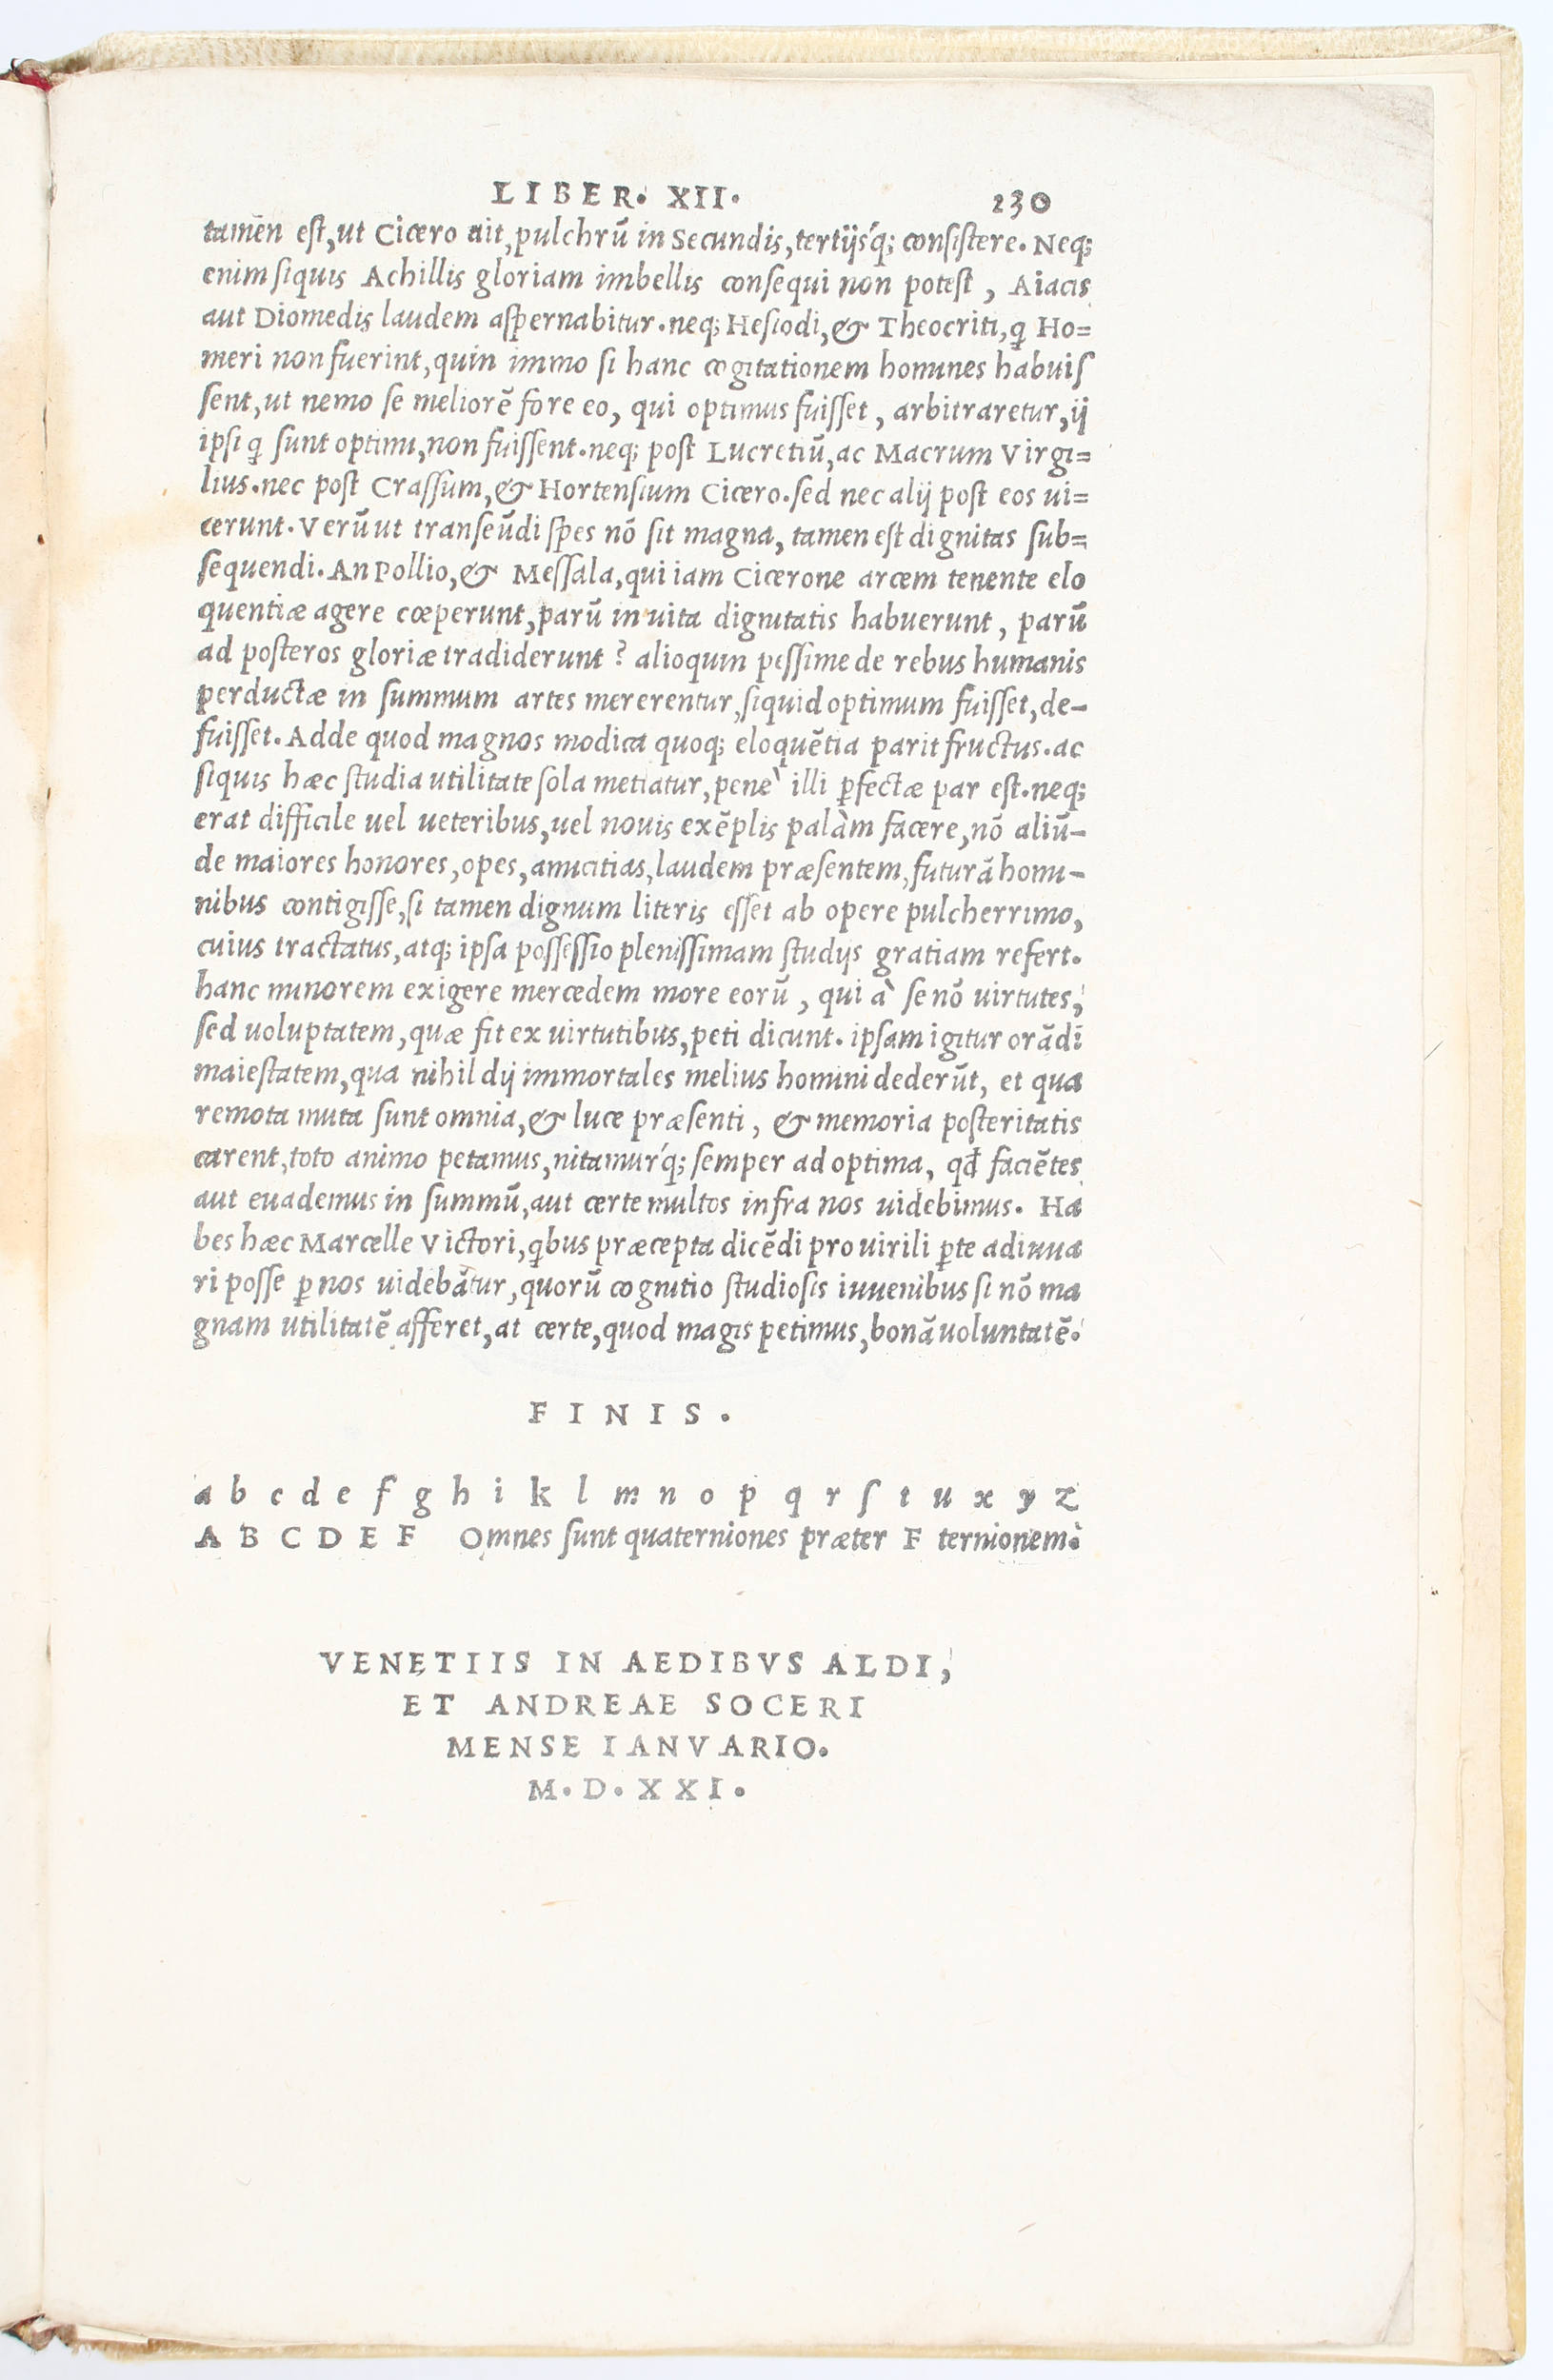 LIBER. XII. 230
tamen est, ut Cicero ait, pulchrũ in Secundis, tertijsq́; consistere. Neq;
enim siquis Achillis gloriam imbellis consequi non potest, Aiacis
aut Diomedis laudem aspernabitur. neq; Hesiodi, & Theocriti, q Ho=
meri non fuerint, quin immo si hanc cogitationem homines habuis
sent, ut nemo se meliorẽ fore eo, qui optimus fuisset, arbitraretur, ij
ipsi q sunt optimi, non fuissent. neq; post Lucretiũ, ac Macrum Virgi=
lius. nec post Crassum, & Hortensium Cicero. sed nec alij post eos ui=
cerunt. Verũ ut transeũdi spes nõ sit magna, tamen est dignitas sub=
sequendi. An Pollio, & Messala, qui iam Cicerone arcem tenente elo
quentiæ agere cœperunt, parũ in uita dignitatis habuerunt, parũ
ad posteros gloriæ tradiderunt? alioquin pessime de rebus humanis
perductæ in summum artes mererentur, siquid optimum fuisset, de-
fuisset. Adde quod magnos modica quoq; eloquẽtia parit fructus. ac
siquis hæc studia utilitate sola metiatur, penè illi ꝑfectæ par est. neq;
erat difficile uel ueteribus, uel nouis exẽplis palàm facere, nõ aliũ-
de maiores honores, opes, amicitias, laudem præsentem, futurã homi-
nibus contigisse, si tamen dignum literis esset ab opere pulcherrimo,
cuius tractatus, atq; ipsa possessio plenissimam studijs gratiam refert.
hanc minorem exigere mercedem more eorũ, qui à se nõ uirtutes,
sed uoluptatem, quæ fit ex uirtutibus, peti dicunt. ipsam igitur orãdi
maiestatem, qua nihil dij immortales melius homini dederũt, et qua
remota muta sunt omnia, & luce præsenti, & memoria posteritatis
carent, toto animo petamus, nitamurq́; semper ad optima, qđ faciẽtes
aut euademus in summũ, aut certe multos infra nos uidebimus. Ha
bes hæc Marcelle Victori, qbus præcepta dicẽdi pro uirili ꝑte adiuua
ri posse ꝑ nos uidebãtur, quorũ cognitio studiosis iuuenibus si nõ ma
gnam utilitatẽ afferet, at certe, quod magis petimus, bonã uoluntatẽ.
FINIS.
a b c d e f g h i k l m n o p q r ſ t u x y z
A B C D E F Omnes sunt quaterniones præter F ternionem.
VENETIIS IN AEDIBVS ALDI,
ET ANDREAE SOCERI
MENSE IANVARIO.
M. D. XXI.